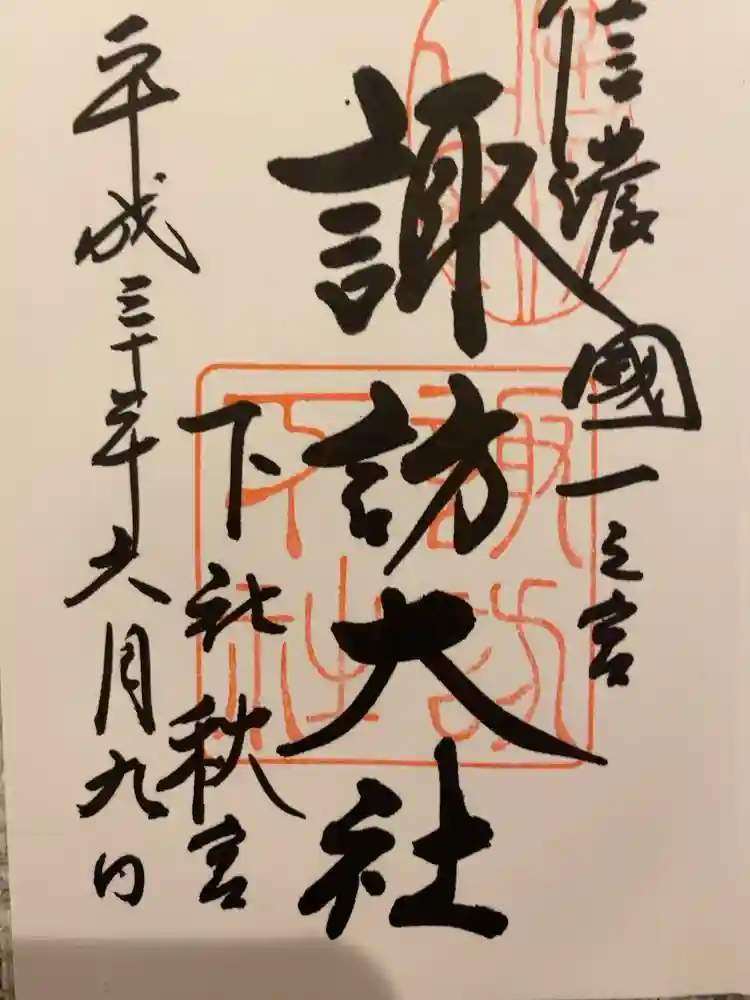 信濃國一之宮
諏訪大社
下社秋宮
平成三十年六月九日
諏訪
下社